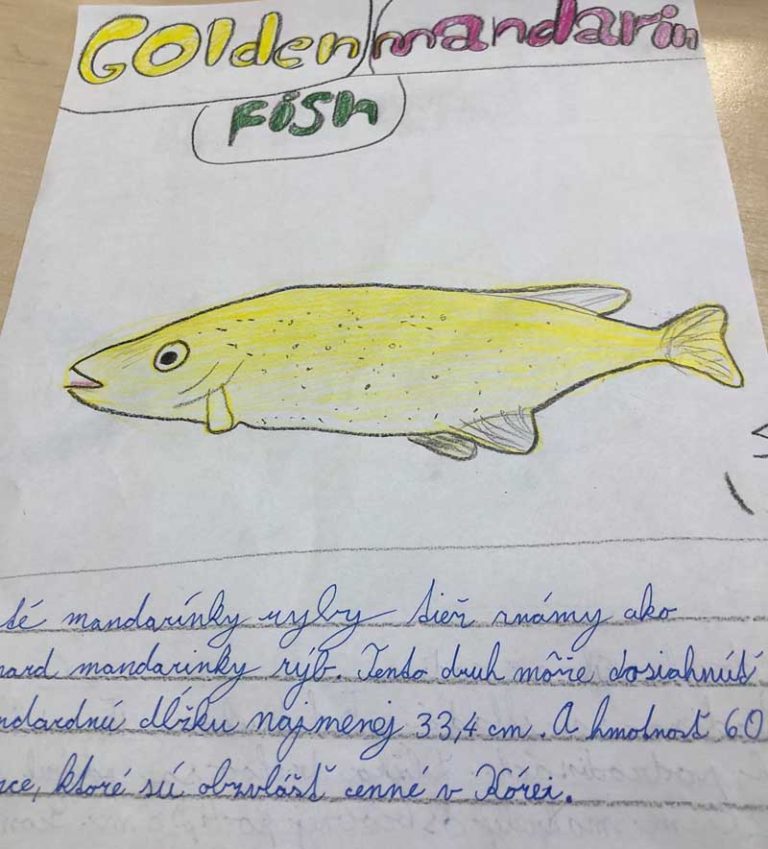 Golden mandarin
fish
té mandarínky ryby tiež známy ako
pard mandarinky rýb. Tento druh môže dosiahnúť
ndardnú dĺžku najmenej 33,4 cm. A hmotnosť 60
ce, ktoré sú obzvlášť cenné v Kórei.